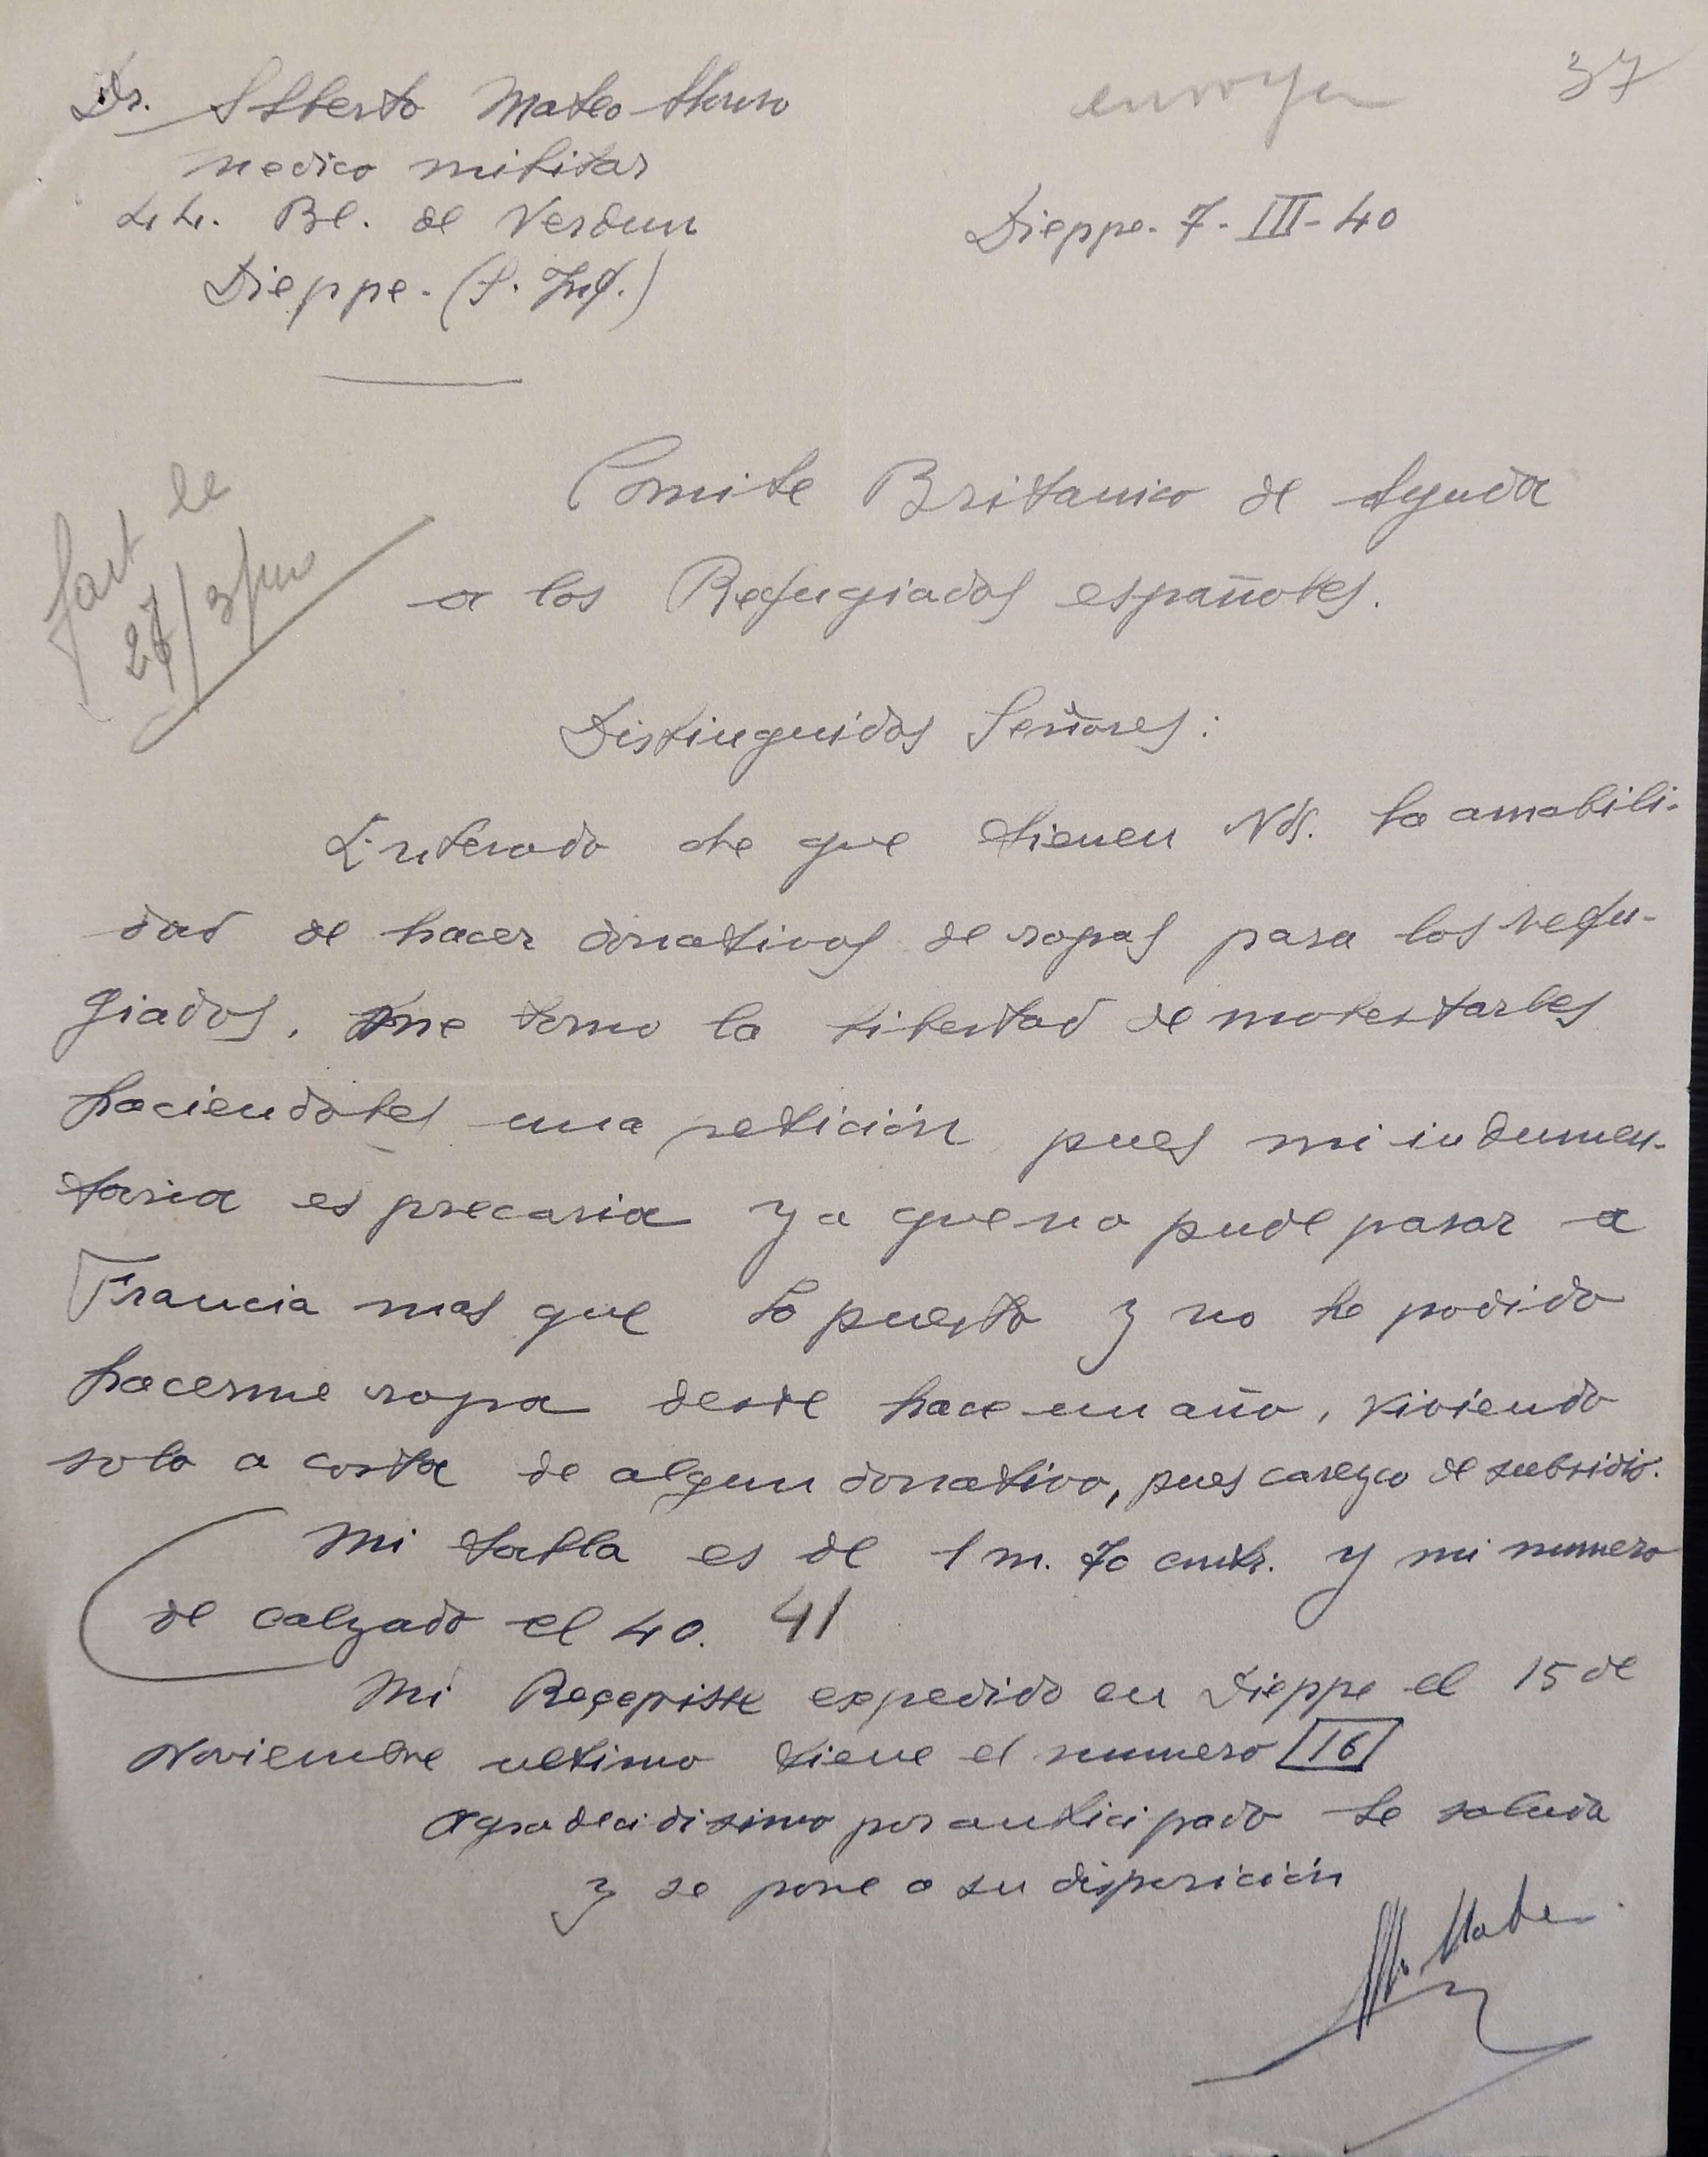 Dr. Alberto Mateo Alonso
medico militar
44. Bl. de Verdun
Dieppe. (S. Inf.)
37
Dieppe. 7-III-40
fait le
27/3
Comite Britanico de Ayuda
a los Refugiados españoles.
Distinguidos Señores:
Enterado de que tienen Vds. la amabili-
dad de hacer donativos de ropas para los refu-
giados, me tomo la libertad de molestarles
haciendoles una petición pues mi indumen-
taria es precaria ya que no pude pasar a
Francia mas que lo puesto y no he podido
hacerme ropa desde hace un año, viviendo
solo a costa de algun donativo, pues carezco de subsidio.
Mi talla es de 1 m. 70 cmts. y mi numero
de calzado el 40. 41
Mi Reçepisse expedido en Dieppe el 15 de
Noviembre ultimo tiene el numero 16
Agradecidisimo por anticipado le saluda
y se pone a su disposición
A. Mateo